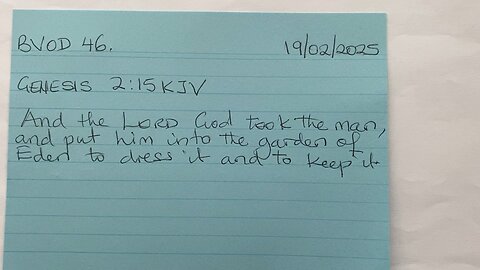 BVOD 46. 19/02/2025
GENESIS 2:15 KJV
And the LORD God took the man,
and put him into the garden of
Eden to dress it and to keep it.